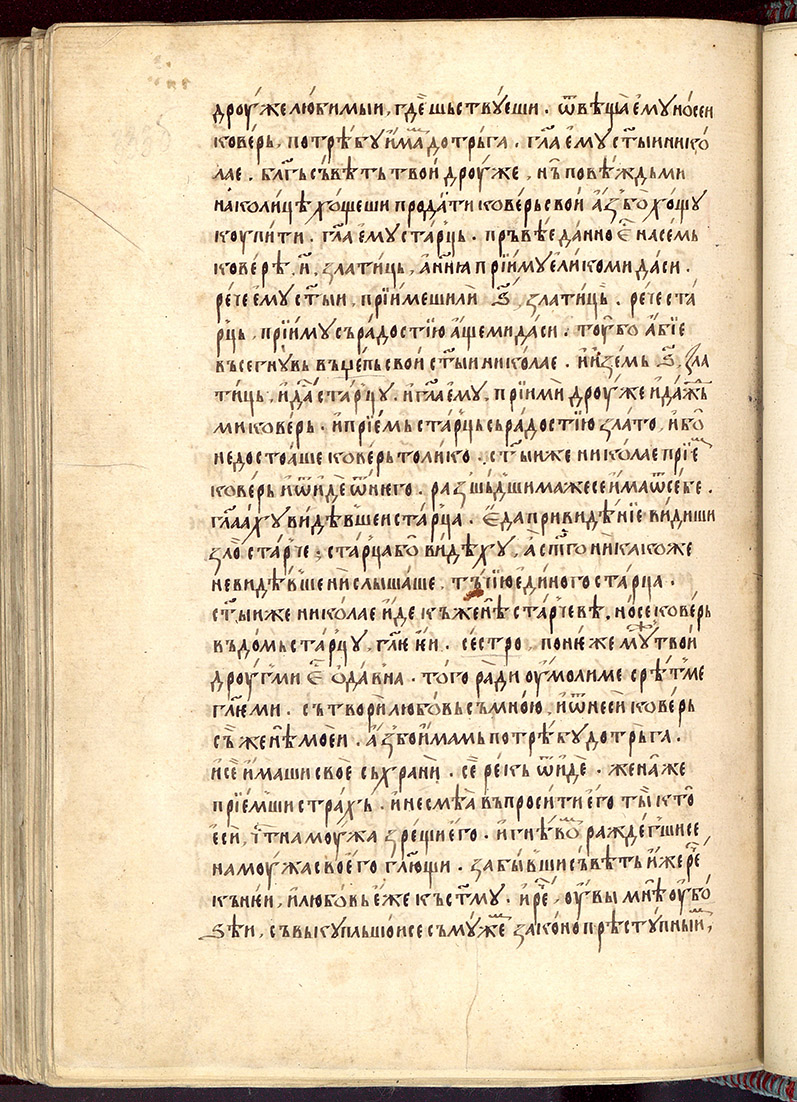 дрꙋ́же любимыи, где̏ шьствꙋеши · ѿвѣща̀ ємꙋ носеи
коверь, потрѣбꙋ и҆ма до трьга · гл҃а ємꙋ ст҃ыи нико
лає · благь съвѣть твои дроуже, нъ повѣждь ми
на колицѣ хощеши продати коверь свои а҆з бо хощꙋ
коупити · гл҃а ємꙋ старць · прьвѣе данно є҆ на семь
ковере, н҃, златиць, а нн҃ꙗ прїимꙋ єлико ми даси ·
рече ємꙋ ст҃ыи, прїимеши ли ѕ҃, златиць · рече ста
рць, прїимꙋ съ радостїю аще ми даси · тоу бо абїе
въсегнꙋвь въ џепь свои ст҃ыи николає · и иземь ѕ҃, зла
тиць, и да старцꙋ · и гл҃а ємꙋ, прїими дроуже и даж
ми коверь · и прїемь старць сь радостїю злато, ибо
не достоаше коверь толико · ст҃ыи же николає прїе
коверь и ѿиде ѿ нѥго · разшьдшима же се има ѿ себе ·
гл҃аахꙋ видѣвшеи старца · є҆да привидѣнїе видиши
зло старче, старца бо видѣхꙋ, а ст҃го никакоже
не видѣвше ни слышаше, тъчїю єдиного старца ·
ст҃ыи же николає иде къ женѣ старчевѣ, носе коверь
въ домь старцꙋ, гл҃ѥ ѥи · сестро, понѥже мꙋ твои
дроуг ми є҆ ѻдавна · того ради оумоли ме срѣт ме
гл҃ѥ ми · сътвори любовь съ мною, и ѿнеси коверь
съ женѣ моеи · а҆з бо имамь потрѣбꙋ до трьга ·
и се имаши свое съхрани · се рекь ѿиде · жена же
прїемши страхь · и не смѣа въпросити єго ты кто
єси, іт на моужа зрещи єго · и гнѣво раждегши се
на моужа своего гл҃ющи · забывши съвѣть иже ре
къ нѥи, и любовь єже къ ст҃мꙋ · и ре, оувы мнѣ оубо
ѕѣи, съвькꙋпльшои се съ мꙋже законопрѣстꙋпныи,